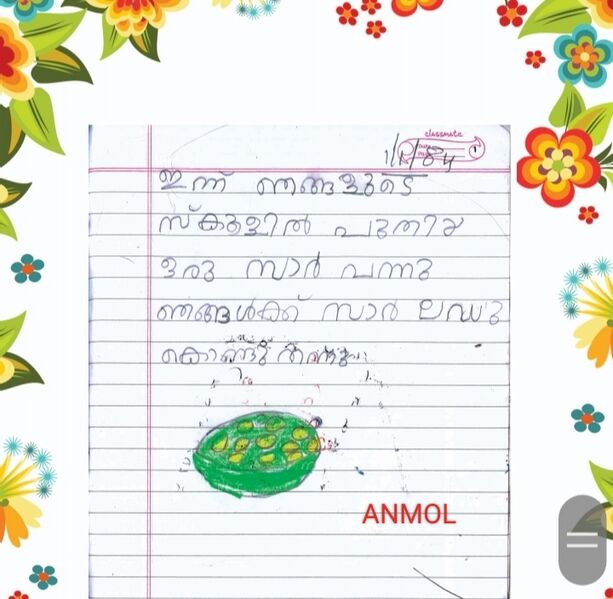 classmate
1/1/84
ഇന്ന് ഞങ്ങളുടെ
സ്കുളിൽ പുതിയ
ഒരു സാർ വന്നു
ഞങ്ങൾക്ക് സാർ ലഡു
തന്നു
ANMOL